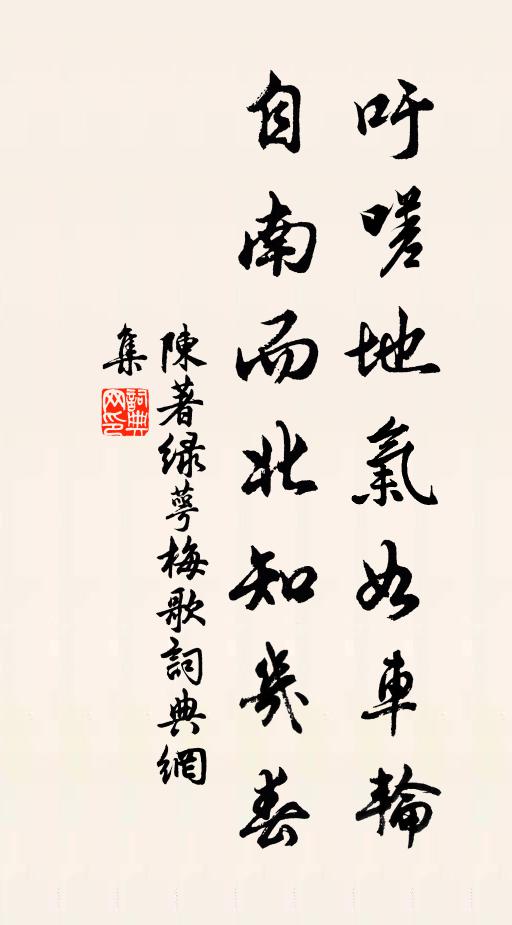 吁嗟地氣如車輪
自南而北知幾春
陳著緑萼梅歌詞典網
集
詞典
网印